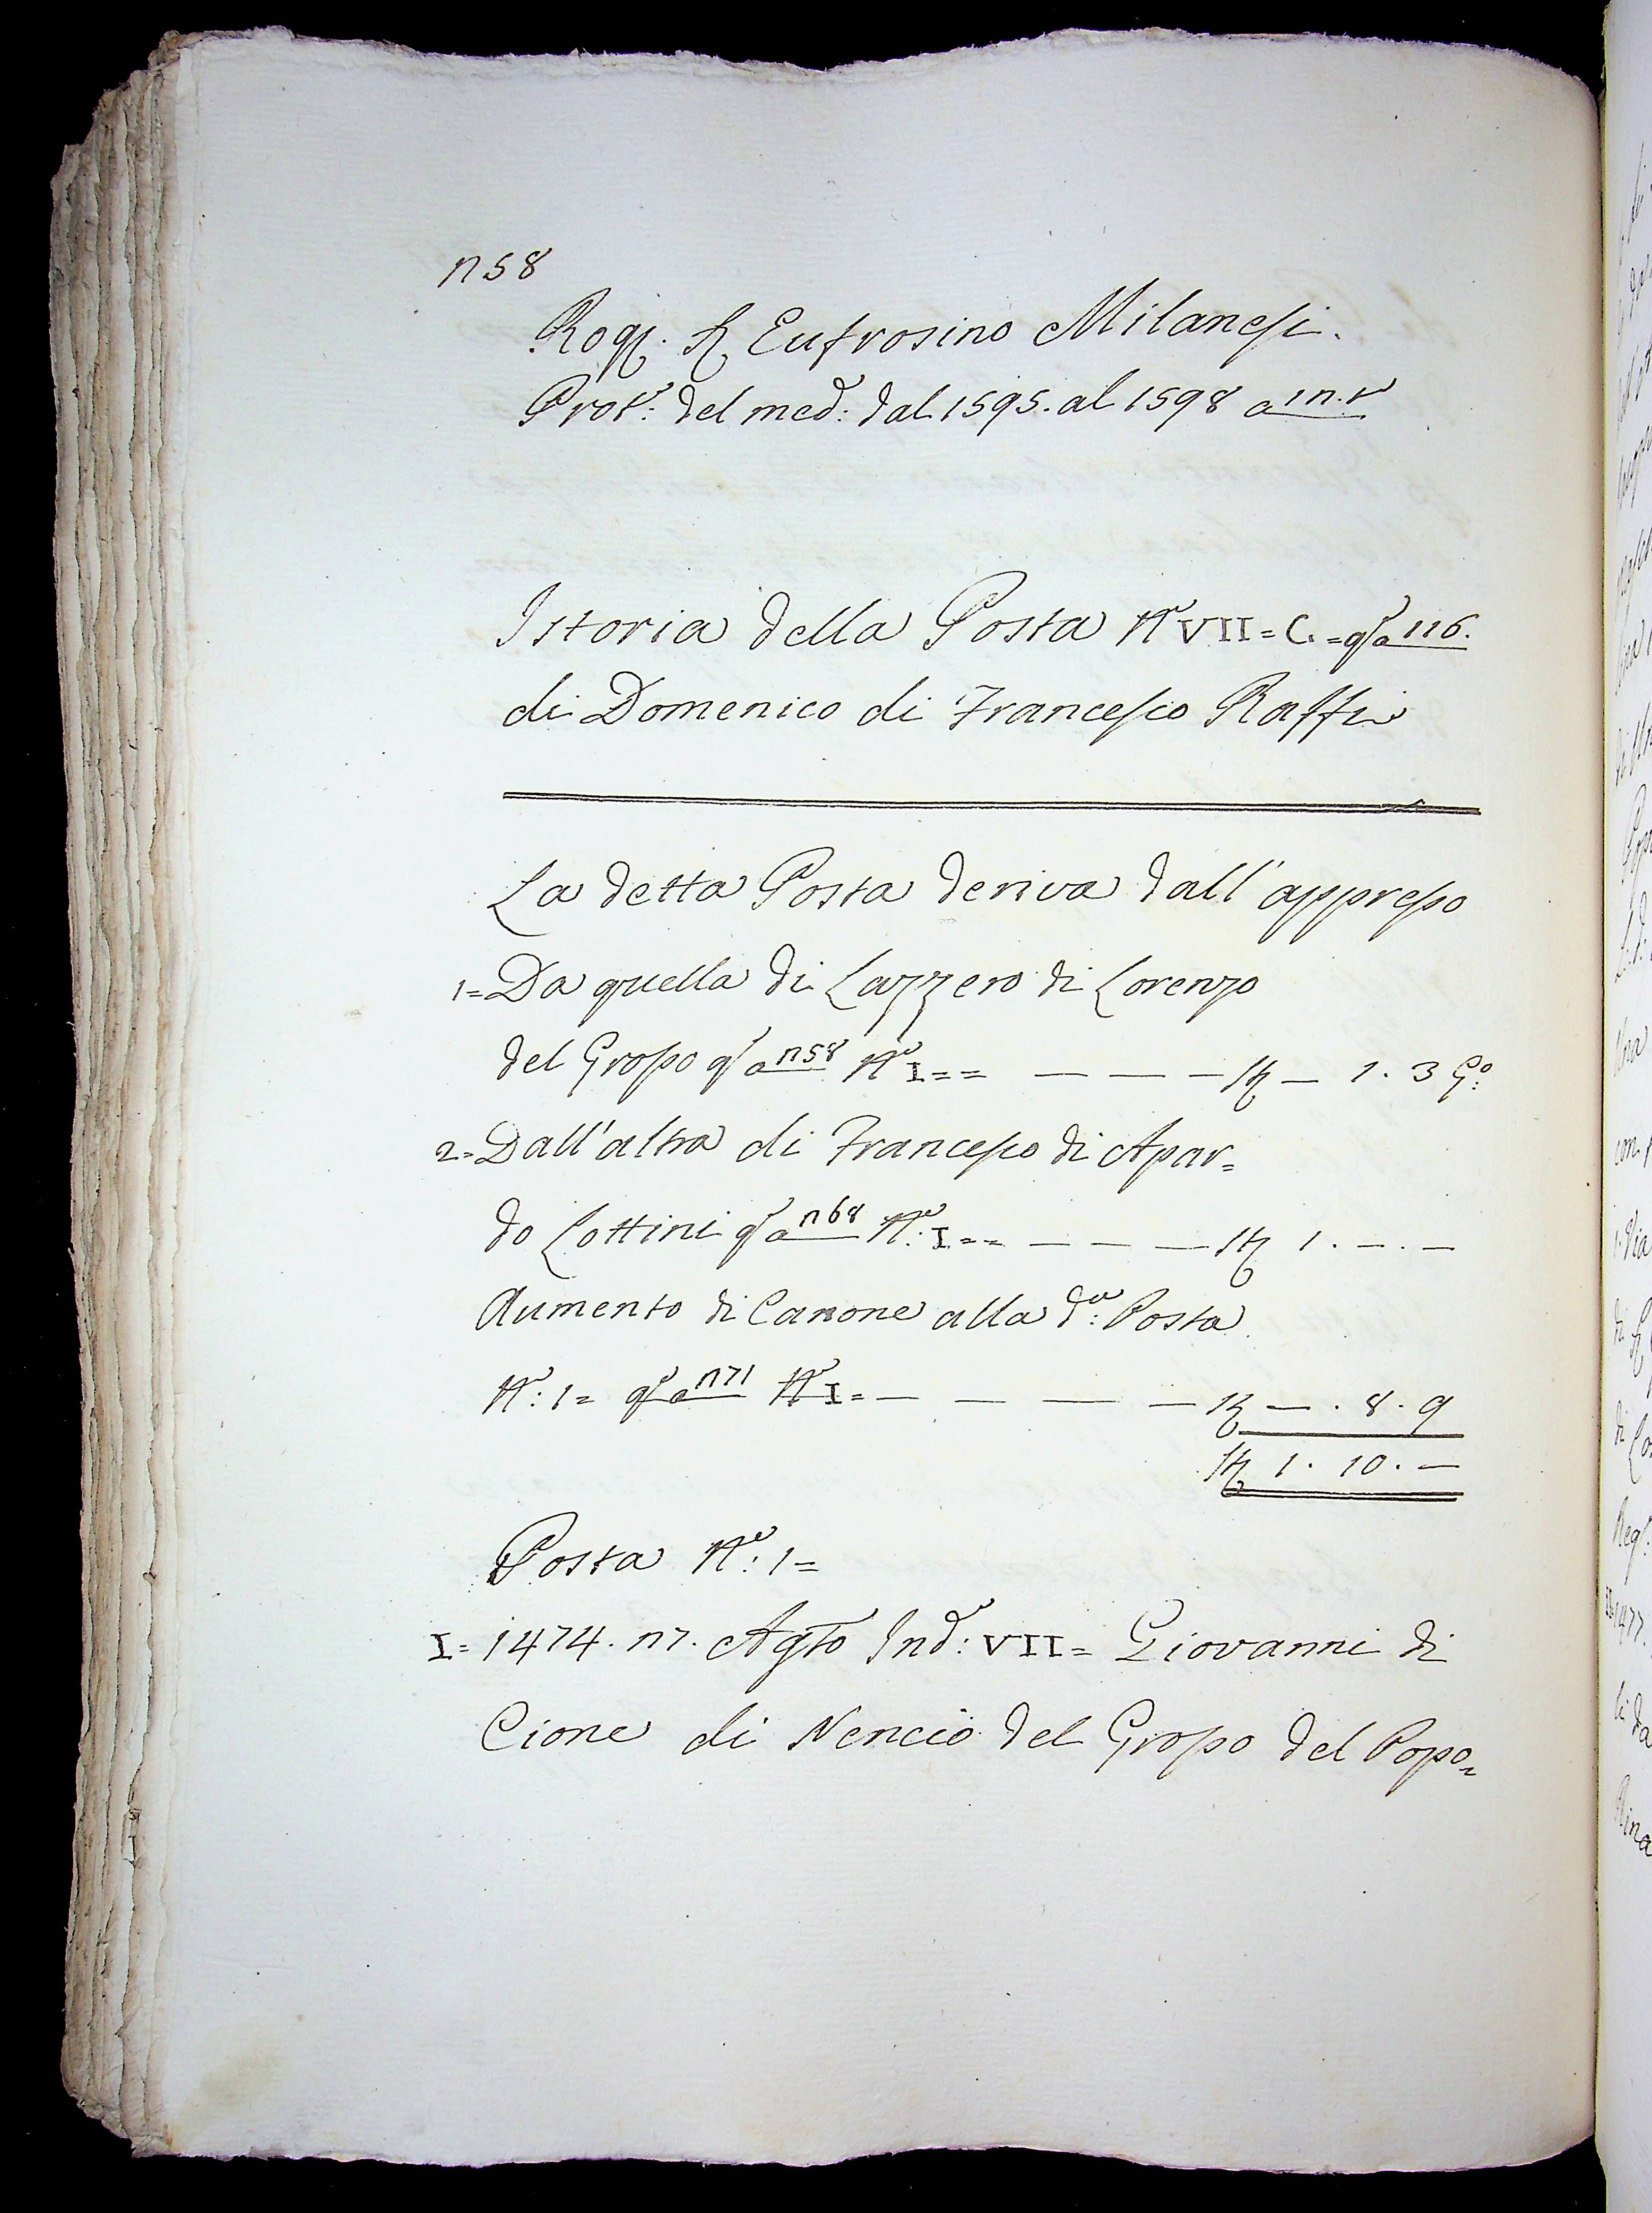 158
Rog. Sr Eufrosino Milanesi.
Prot.: del med.: dal 1595. al 1598 a
Istoria della Posta No VII = C. = qto a 116.
di Domenico di Francesco Raffi
La detta Posta deriva dall'appresso
1= Da quella di Lazzero di Lorenzo
del Grosso qto a 158 No I = = — — — — 1. 3
2= Dall'altra di Francesco di Apar=
do Lottini qto a 168 No: I = = — — — 1. — . —
Aumento di Canone alla da: Posta
No: 1 = qto a 171 No I = — — — — — . 8. 9
1. 10. —
Posta No: 1 =
I = 1474. 17. Agto Ind: VII = Giovanni di
Cione di Nencio del Grosso del Popo=